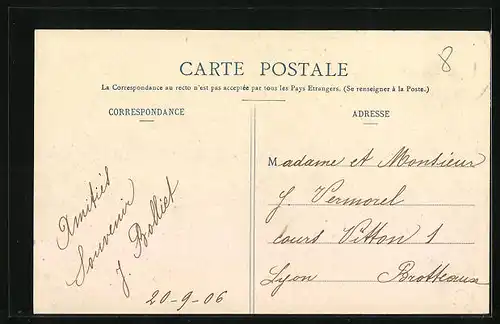 8
CARTE POSTALE
La Correspondance au recto n'est pas acceptée par tous les Pays Etrangers. (Se renseigner à la Poste.)
CORRESPONDANCE
Amitiés
Souvenir
J. Bolliet
20-9-06
ADRESSE
Madame et Monsieur
J. Vermorel
cours Vitton 1
Lyon Brotteaux